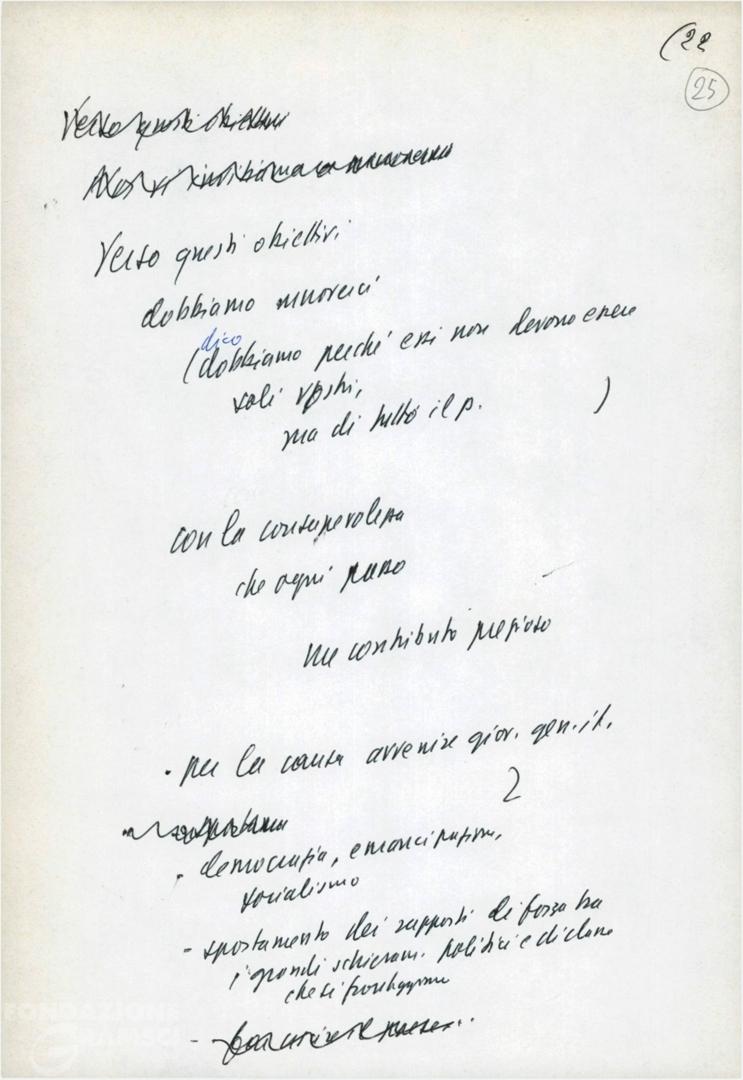 (22
25
Verso questi obiettivi
Verso questi obiettivi
dobbiamo muoverci
dico
(dobbiamo perché essi non devono essere
soli vostri,
ma di tutto il p. )
con la consapevolezza
che ogni passo
un contributo prezioso
• per la causa avvenire giov. gen. it.
2
• democrazia, emancipazione,
socialismo
- spostamento dei rapporti di forza tra
i grandi schieram. politici e di classe
che si fronteggiano
-
FONDAZIONE
GRAMSCI